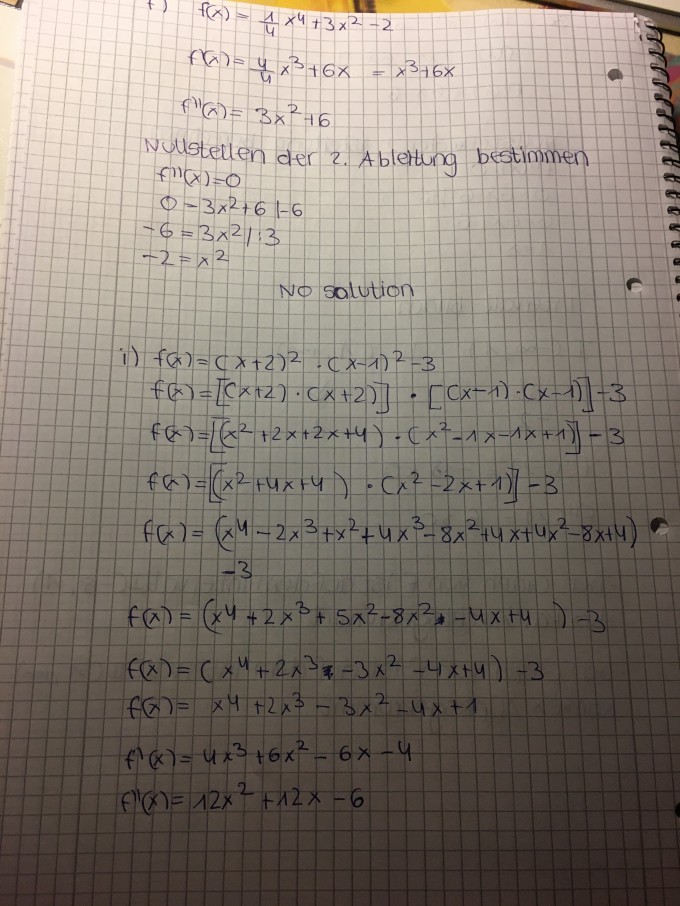 f) f(x) = 1/4 x⁴ + 3x² - 2
f'(x) = 4/4 x³ + 6x = x³ + 6x
f''(x) = 3x² + 6
Nullstellen der 2. Ableitung bestimmen
f''(x) = 0
0 = 3x² + 6 | -6
-6 = 3x² | :3
-2 = x²
NO solution
i) f(x) = (x+2)² · (x-1)² - 3
f(x) = [(x+2) · (x+2)] · [(x-1) · (x-1)] - 3
f(x) = [(x² + 2x + 2x + 4) · (x² - 1x - 1x + 1)] - 3
f(x) = [(x² + 4x + 4) · (x² - 2x + 1)] - 3
f(x) = (x⁴ - 2x³ + x² + 4x³ - 8x² + 4x + 4x² - 8x + 4)
- 3
f(x) = (x⁴ + 2x³ + 5x² - 8x² - 4x + 4) - 3
f(x) = (x⁴ + 2x³ - 3x² - 4x + 4) - 3
f(x) = x⁴ + 2x³ - 3x² - 4x + 1
f'(x) = 4x³ + 6x² - 6x - 4
f''(x) = 12x² + 12x - 6